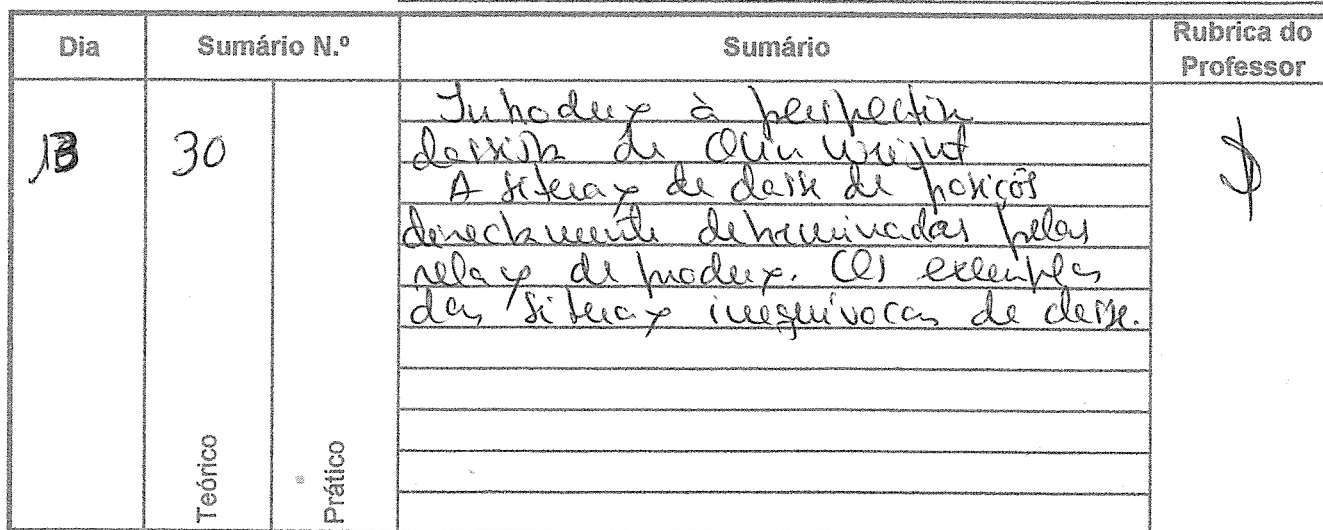 Dia Sumário N.º Sumário Rubrica do Professor
13 30
Introdução à perspectiva
classista de Olin Wright
A situação de classe de posições
directamente determinadas pelas
relações de produção. Os exemplos
das situações inequívocas de classe.
Teórico Prático